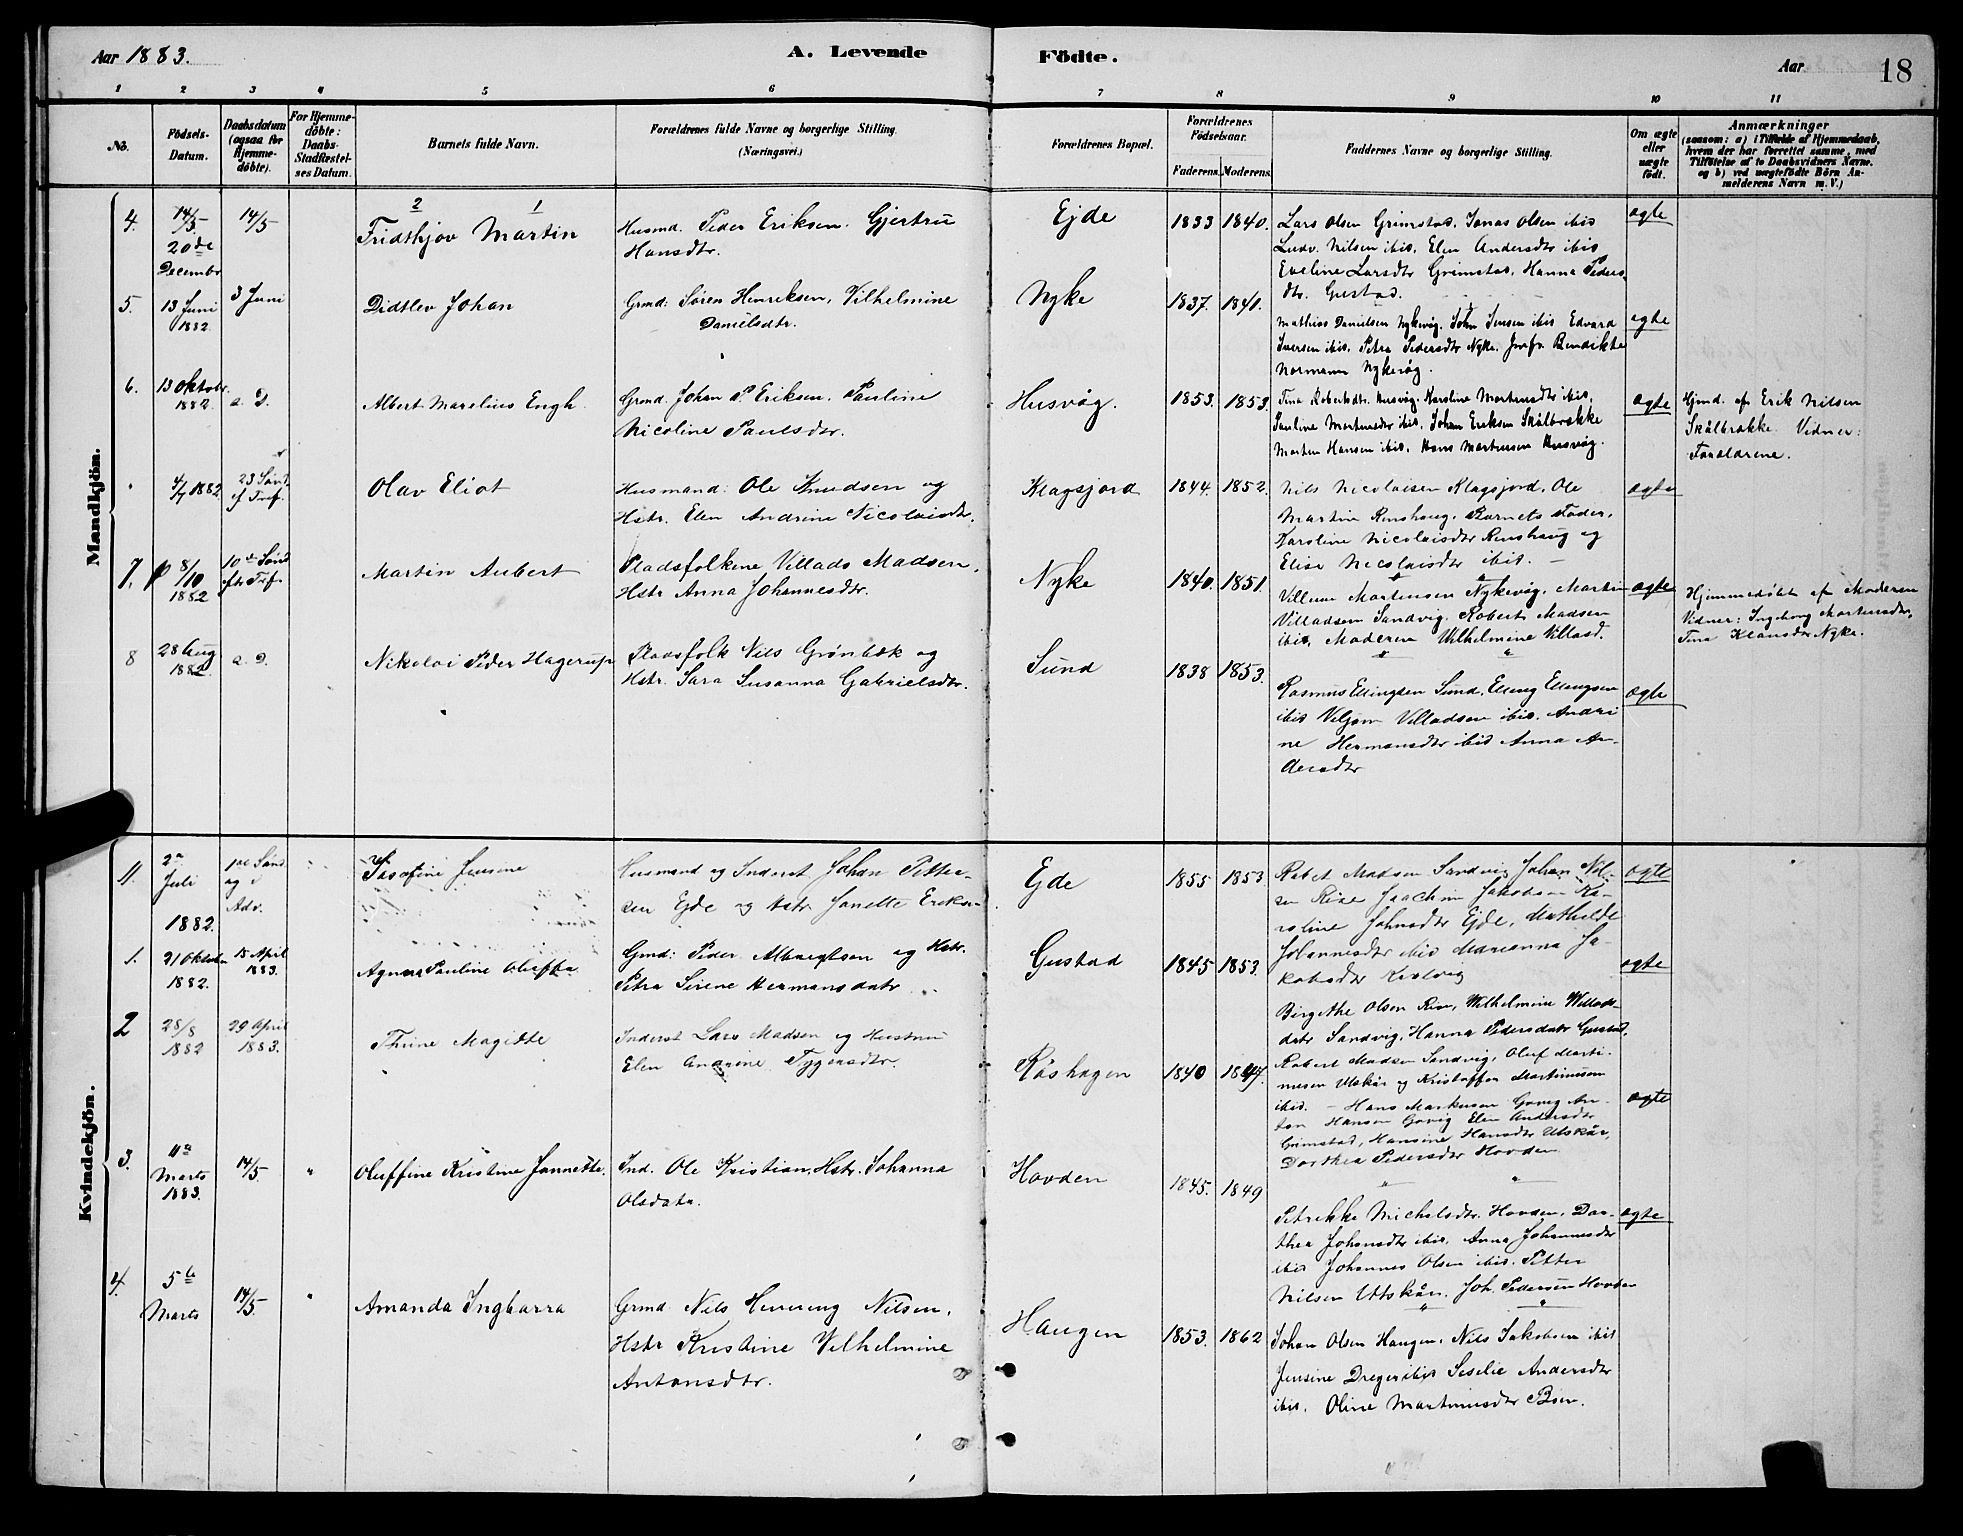 Aar 1883.
A. Levende Födte.
Aar
18
1 2 3 4 5 6 7 8 9 10 11
No.
Födsels-Datum.
Daabsdatum (ogsaa for Hjemmedöbte).
For Hjemmedöbte: Daabs-Stadfæstelses Datum.
Barnets fulde Navn.
Forældrenes fulde Navne og borgerlige Stilling.
(Næringsvei.)
Forældrenes Bopæl.
Forældrenes Födselsaar.
Faderens. Moderens.
Faddernes Navne og borgerlige Stilling.
Om ægte eller uægte födt.
Anmærkninger
(saasom: a) i Tilfælde af Hjemmedaab,
hvem der har forrettet samme, med
Tilföielse af to Daabsvidners Navne.
og b) ved uægtefödte Börn An-
melderens Navn m. V.)
Mandkjön.
4.
14/5
20de
Decembr
14/5
2 1
Fridthjov Martin
Husmd. Peder Eriksen. Gjertru
Hansdtr.
Ejde
1833 1840.
Lars Olsen Grimstad, Jonas Olsen ibid
Ludv. Nilsen ibid, Elen Andersdtr ibid
Eveline Larsdtr Grimstad, Hanna Peders
dtr. Gustad.
ægte
5.
13 Juni
1882.
3 Juni
Didtlev Johan
Grmd: Søren Henriksen, Vilhelmine
Danielsdtr.
Nyke
1837. 1840.
Mathias Danielsen Nykvåg. John Jensen ibid Edvard
Iversen ibid. Petra Pedersdtr Nyke. Jomfr Bendikte
Normann Nykvåg.
ægte
6.
13 Oktobr.
1882.
a. D.
Albert Marelius Engh.
Grmd. Johan P Eriksen. Pauline
Nicoline Paulsdtr.
Husvåg.
1853. 1853
Tina Robertsdtr. Husvåg. Karoline Mortensdtr ibid.
Pauline Mortensdtr ibid. Johan Eriksen Skålbrække
Morten Hansen ibid. Hans Mortensen Husvåg.
ægte
Hjmd. af Erik Nilsen
Skålbrække. Vidner:
Forældrene.
4/7 1882
23 Sønd
ef Tref.
Olav Eliot
Husmand: Ole Knudsen og
Hstr. Elen Andrine Nicolaisdtr.
Klagsjord
1844. 1852.
Nils Nicolaisen Klagsjord, Ole
Martin Renshaug, Barnets Fader,
Karoline Nicolaisdtr Renshaug og
Elise Nicolaisdtr ibid.
ægte
7.
8/10
1882
10de Sønd
eftr Tref.
Martin Aubert
Pladsfolkene Villads Madsen.
Hstr Anna Johannesdtr.
Nyke
1840. 1851.
Villum Mortensen Nykvåg, Martin
Villadsen Sandvig, Robert Madsen
ibid, Moderen Wilhelmine Villasd.
ægte
Hjemmedøbt af Moderen
Vidner: Ingeborg Mortensdtr,
Tina Klausdtr Nyke.
8
28 Aug
1882
a. D.
Nikolai Peder Hagerup
Pladsfolk Nils Grønbæk og
Hstr. Sara Susanna Gabrielsdtr.
Sund
1838 1853.
Rasmus Ellingsen Sund, Elling Ellingsen
ibid Viljam Villadsen ibid. Andri
ne Hermansdtr ibid Anna An-
dersdtr
ægte
Kvindekjön.
11.
2n
Juli
1882.
1ste Sønd
ag i
Adv.
Josefine Jensine
Husmand og Inderst Johan Petter-
sen Ejde og Hstr Janette Eriksd
Ejde
1855 1853
Robert Madsen Sandvig Johan Nil-
sen Rise Joachim Jakobsen Ka-
roline Johnsdtr Ejde, Mathilde
Johannesdtr ibid Marianna Ja-
kobsdtr
ægte
1.
21 Oktobr
1882.
15 April
1883.
Agnes Pauline Oluffa
Grmd: Peder Albregtsen og Hstr.
Petra Sirene Hermansdatr
Gustad
1845 1853.
Birgithe Olsen Rise, Wilhelmine Willads-
datr Sandvig, Hanna Pedersdatr Gustad,
Robert Madsen Sandvig, Oluf Marti-
nusen Utskår og Kristoffer Martinusen
ibid.
ægte
2
28/8
1882
29 April
1883.
Thrine Magitte
Inderst Lars Madsen og Hustru
Elen Andrine Tygersdtr.
Råshagen
1840 1847.
Hans Markusen Govig An-
ton Hansen Govig Elen Andersdtr
Grimstad, Hansine Hansdtr Utskår,
Dorthea Pedersdtr Hovden
ægte
3.
11te
Marts
1883.
14/5
"
Oluffine Kristine Jannette.
Ind. Ole Kristian, Hstr. Johanna
Olsdatr.
Hovden
1845. 1849
Petrikke Michelsdtr. Hovden, Dor-
thea Johansdtr ibid. Anna Johannesdtr
ibid Johannes Olsen ibid. Petter
Nilsen Utskår. Joh. Pedersen Hovden
ægte
4.
5te
Marts
14/5
"
Amanda Ingbarra
Grmd. Nils Henning Nilsen.
Hstr Kristine Vilhelmine
Antonsdtr.
Haugen
1853. 1862
Johan Olsen Haugen, Nils Jakobsen ibid
Jensine Dreyer ibid Seselie Andersdtr
ibid. Oline Martinusdtr Bøen.